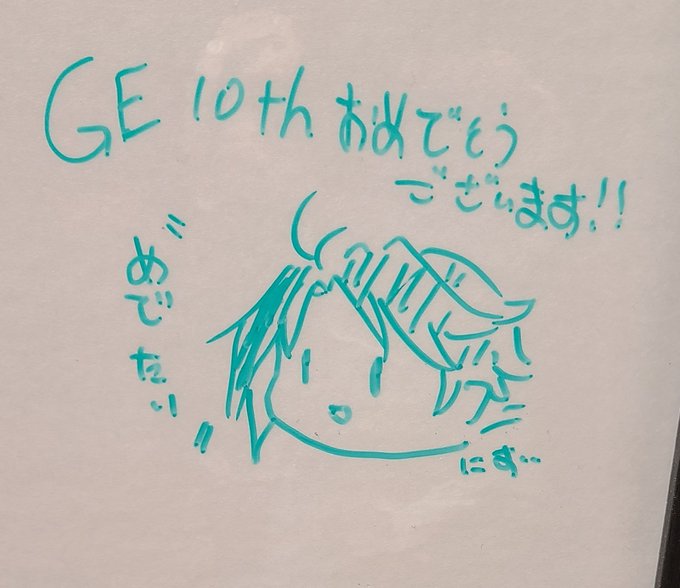 GE 10th おめでとう
ございます!!
〝めでたい〟